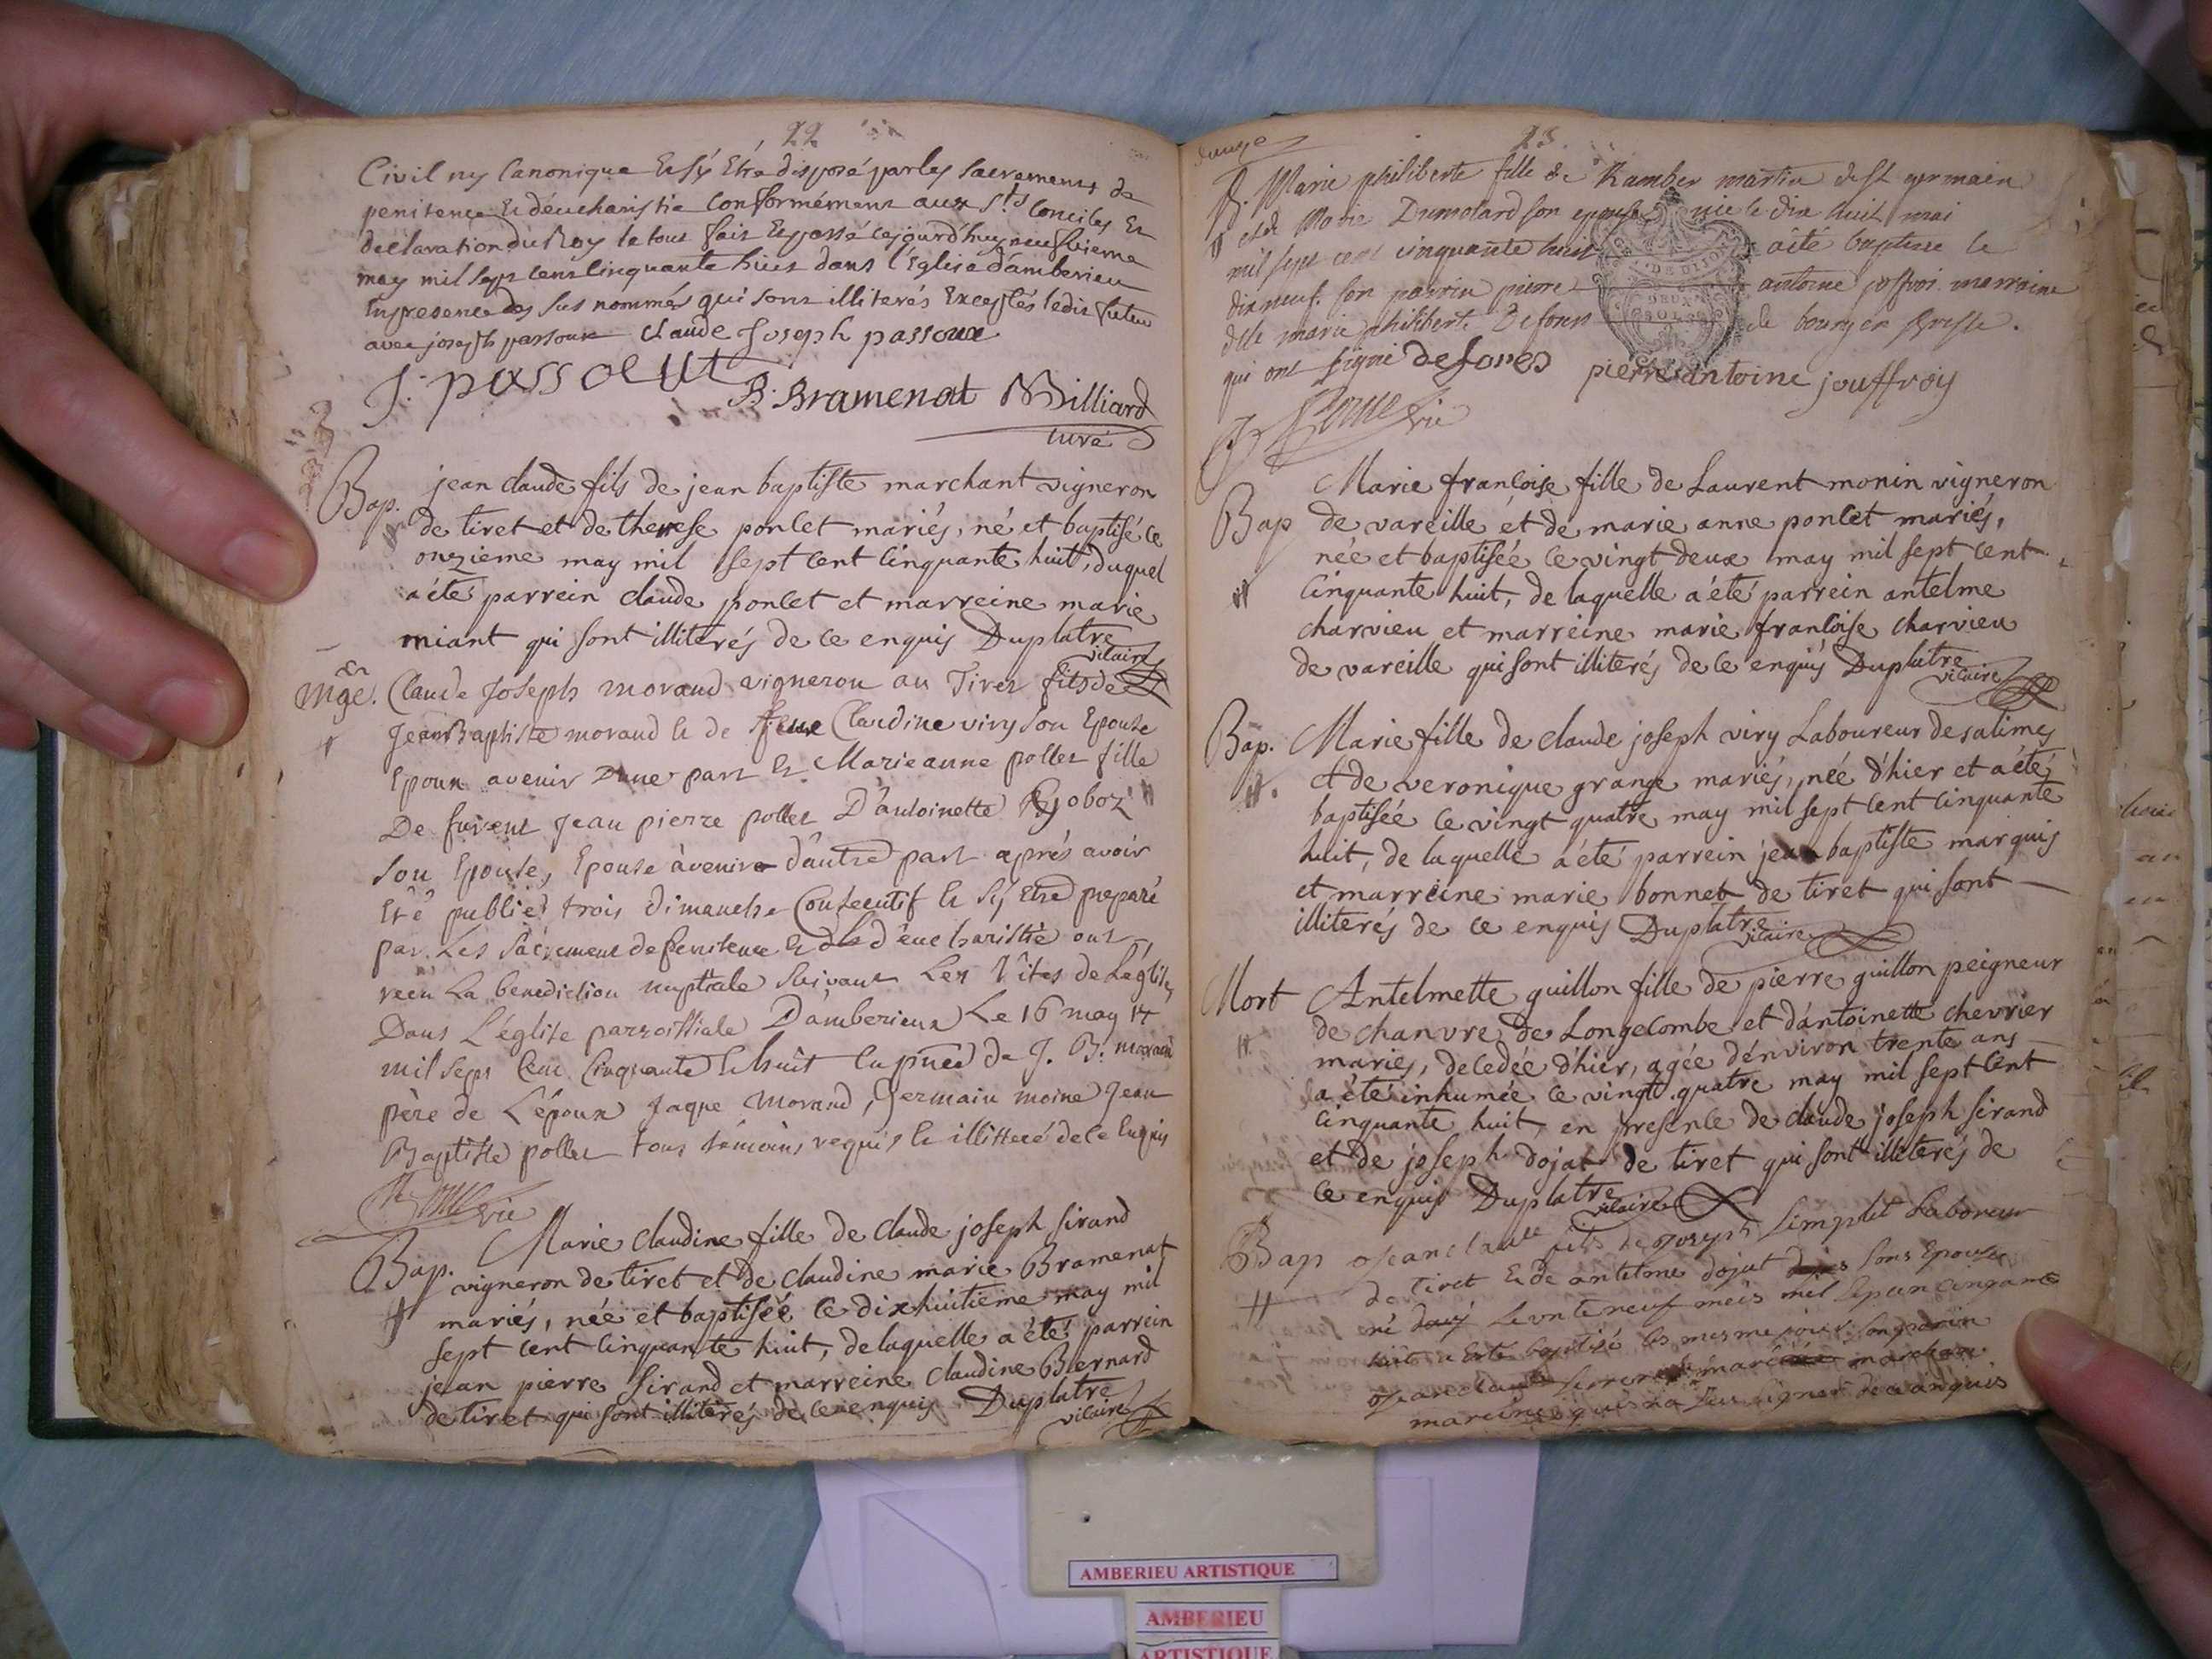 22
Civil ny Canonique Et s'y Etre disposé par les sacremens de
penitence Et d'eucharistie Conformément aux Sts Conciles Et
declaration du Roy le tout fait Et passé cejourd'huy neufvieme
may mil sept cens cinquante huit dans l'Eglise d'amberieu
En presence des sus nommés qui sont illiterés Exceptés ledit futur
avec joseph passoux claude Joseph passoux
J. passout
B. Bramenat Milliard
curé
Bap. jean claude fils de jean baptiste marchant vigneron
de tiret et de therese poncet mariés, né et baptisé ce
onzieme may mil sept cent cinquante huit, duquel
a été parrein claude poncet et marreine marie
miant qui sont illiterés de ce enquis Duplatre
vicaire
Mge. Claude Joseph morand vigneron au Tiret fils de
Jean Baptiste morand Et de feue Claudine viry son Epouse
Epoux avenir D'une part Et Marieanne pollet fille
De Jean pierre pollet D'antoinette
son Epouse, Epouse à venir d'autre part après avoir
Eté publié trois dimanche Consecutif Et s'y Etre preparé
par Les sacrement de penitence Et d'eucharistie ont
reçu La benediction nuptiale suivant Les rites de L'église
Dans L'église parroissiale D'amberieux Le 16 may
mil sept Cent Cinquante Et huit En présence de J. B. morand
père de L'époux Jaque Morand, Germain moine Jean
Baptiste pollet tous témoins requis Et illitteré de ce Enquis
vic
Bap. Marie claudine fille de claude joseph sirand
vigneron de tiret et de claudine marie Bramenat
mariés, née et baptisée ce dixhuitieme may mil
sept cent cinquante huit, de laquelle a été parrein
jean pierre sirand et marreine claudine Bernard
de tiret qui sont illiterés de ce enquis Duplatre
vicaire
23
B. Marie philiberte fille de Ramber martin de St germain
et de Marie Dumolard son epouse née le dix huit mai
mil sept cent cinquante huit a été baptisée le
dixneuf. son parrin pierre antoine joffroi marraine
delle marie philiberte Defores de bourg en Bresse.
qui ont signé defores pierre antoine jouffroy
DE DIJON
DEUX
SOLS
vic
Marie francoise fille de Laurent monin vigneron
Bap de vareille et de marie anne poncet mariés,
née et baptisée ce vingt deux may mil sept cent
cinquante huit, de laquelle a été parrein antelme
charvieu et marreine marie francoise charvieu
de vareille qui sont illiterés de ce enquis Duplatre
vicaire
Bap. Marie fille de claude joseph viry Laboureur des alimes
et de veronique grange mariés, née d'hier et a été
baptisée ce vingt quatre may mil sept cent cinquante
huit, de laquelle a été parrein jean baptiste marquis
et marreine marie bonnet de tiret qui sont
illiterés de ce enquis Duplatre
vicaire
Mort Antelmette guillon fille de pierre guillon peigneur
de chanvre de Longecombe et d'antoinette chevrier
mariés, decedée d'hier, agée d'environ trente ans
a été inhumée ce vingt quatre may mil sept cent
cinquante huit, en presence de claude joseph sirand
et de joseph dojat de tiret qui sont illiterés de
ce enquis Duplatre
vicaire
Bap Jean claude fils de Joseph simplet Laboureur
de tiret Et de antelme dojat sons Epouse
né le vnte neuf meis mil sept cen cinqante
huit a Esté baptisé les mesme jour son parin
Jean claude
mareine qui na seu signer de ce anquis
AMBERIEU ARTISTIQUE
AMBERIEU
ARTISTIQUE